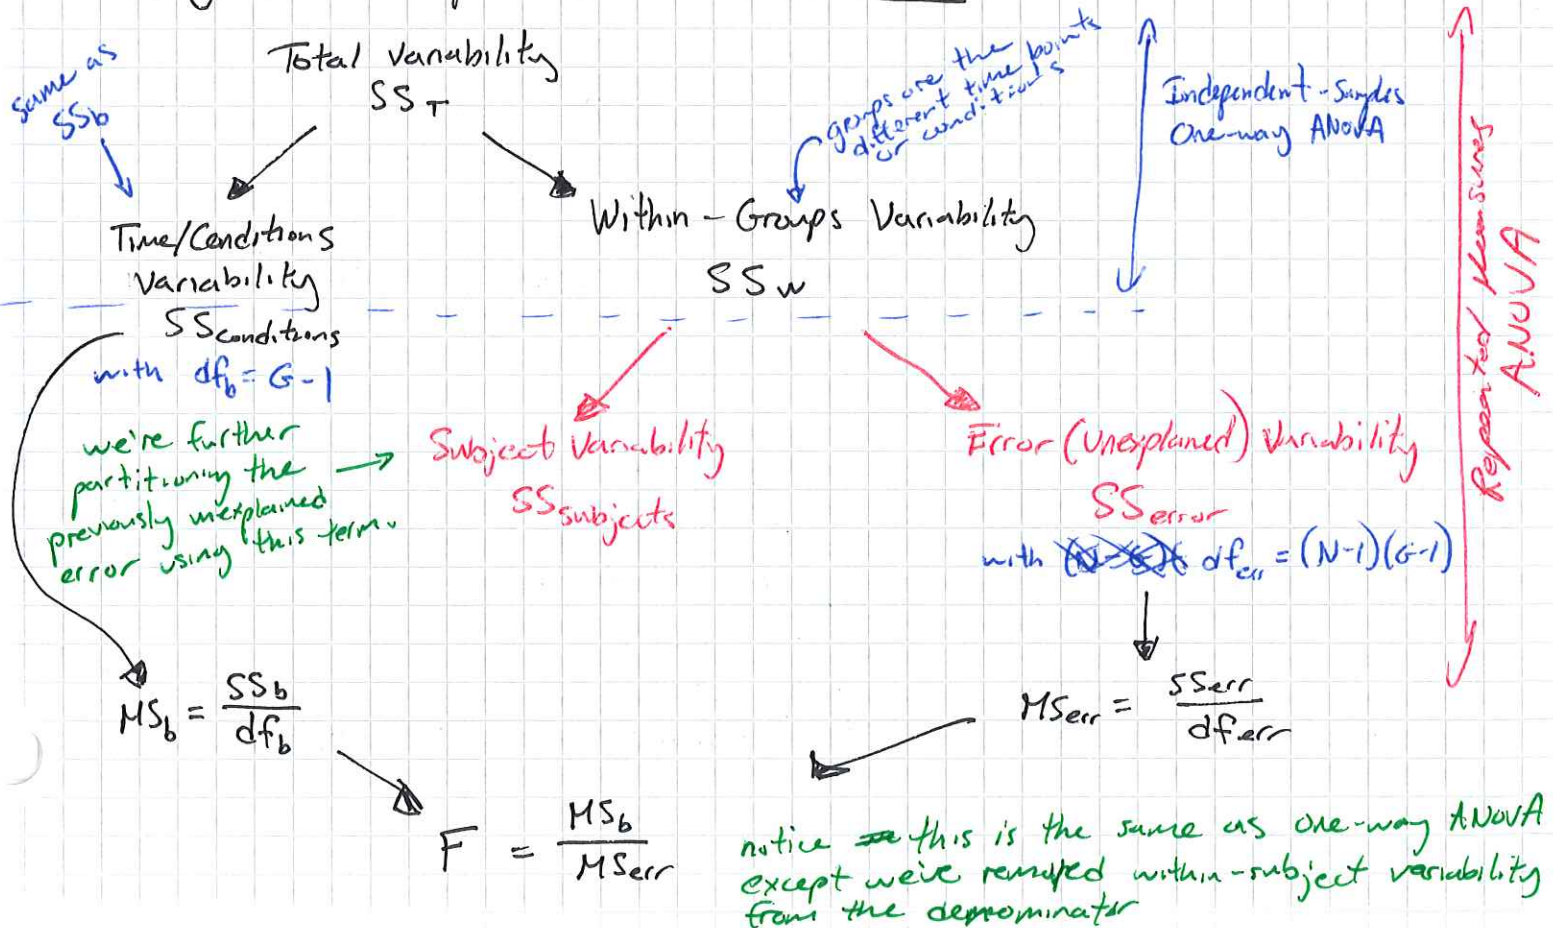 Total Variability
SS_T
same as
SSb
groups are the
different time points
or conditions
Independent-Samples
One-way ANOVA
Repeated Measures
ANOVA
Time/Conditions
Variability
SS_conditions
with df_b = G-1
Within-Groups Variability
SS_W
we're further
partitioning the
previously unexplained
error using this term.
Subject Variability
SS_subjects
Error (Unexplained) Variability
SS_error
with df_err = (N-1)(G-1)
MS_b = SS_b / df_b
MS_err = SS_err / df_err
F = MS_b / MS_err
notice this is the same as one-way ANOVA
except we've removed within-subject variability
from the denominator